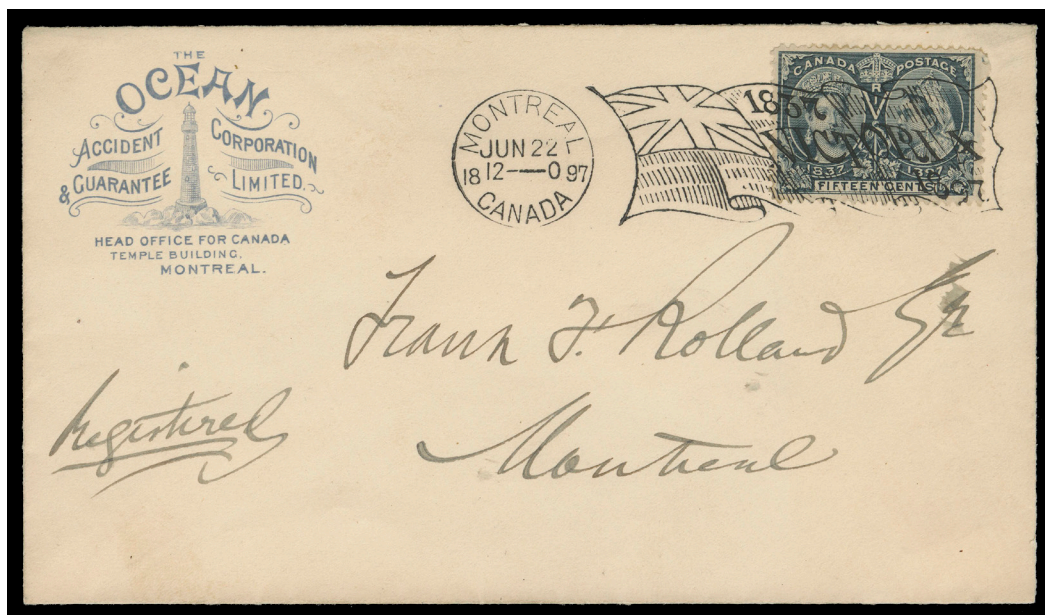 THE
OCEAN
ACCIDENT CORPORATION
& GUARANTEE LIMITED.
HEAD OFFICE FOR CANADA
TEMPLE BUILDING,
MONTREAL.
MONTREAL
JUN 22
18 12—0 97
CANADA
1837
VICTORIA
1897.
CANADA POSTAGE
1837 1897
FIFTEEN CENTS
Frank F. Rolland
Registered
Montreal